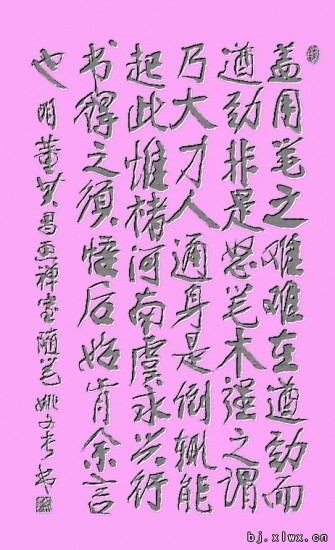 盖用笔之难难在遒劲而
遒劲非是怒笔木强之谓
乃大才人通身是倒辄能
起此惟楮河南虞永兴行
书得之须悟后始肯余言
也
明董其昌画禅室随笔 姚文奎书
bj.xlwx.cn